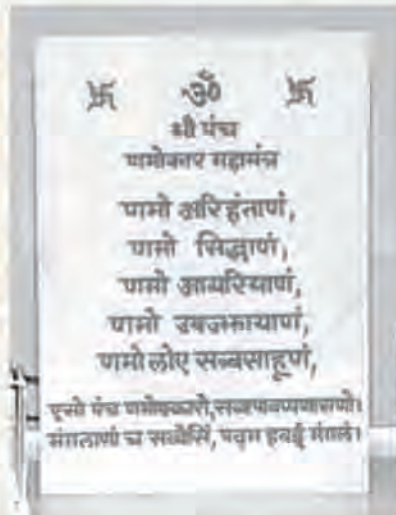 卐 ॐ 卐
श्री पंच
णमोकार महामंत्र
णमो अरिहंताणं,
णमो सिद्धाणं,
णमो आयरियाणं,
णमो उवज्झायाणं,
णमो लोए सव्वसाहूणं,
एसो पंच णमोक्कारो, सव्वपावप्पणासणो।
मंगलाणं च सव्वेसिं, पढ़म हवई मंगलं।